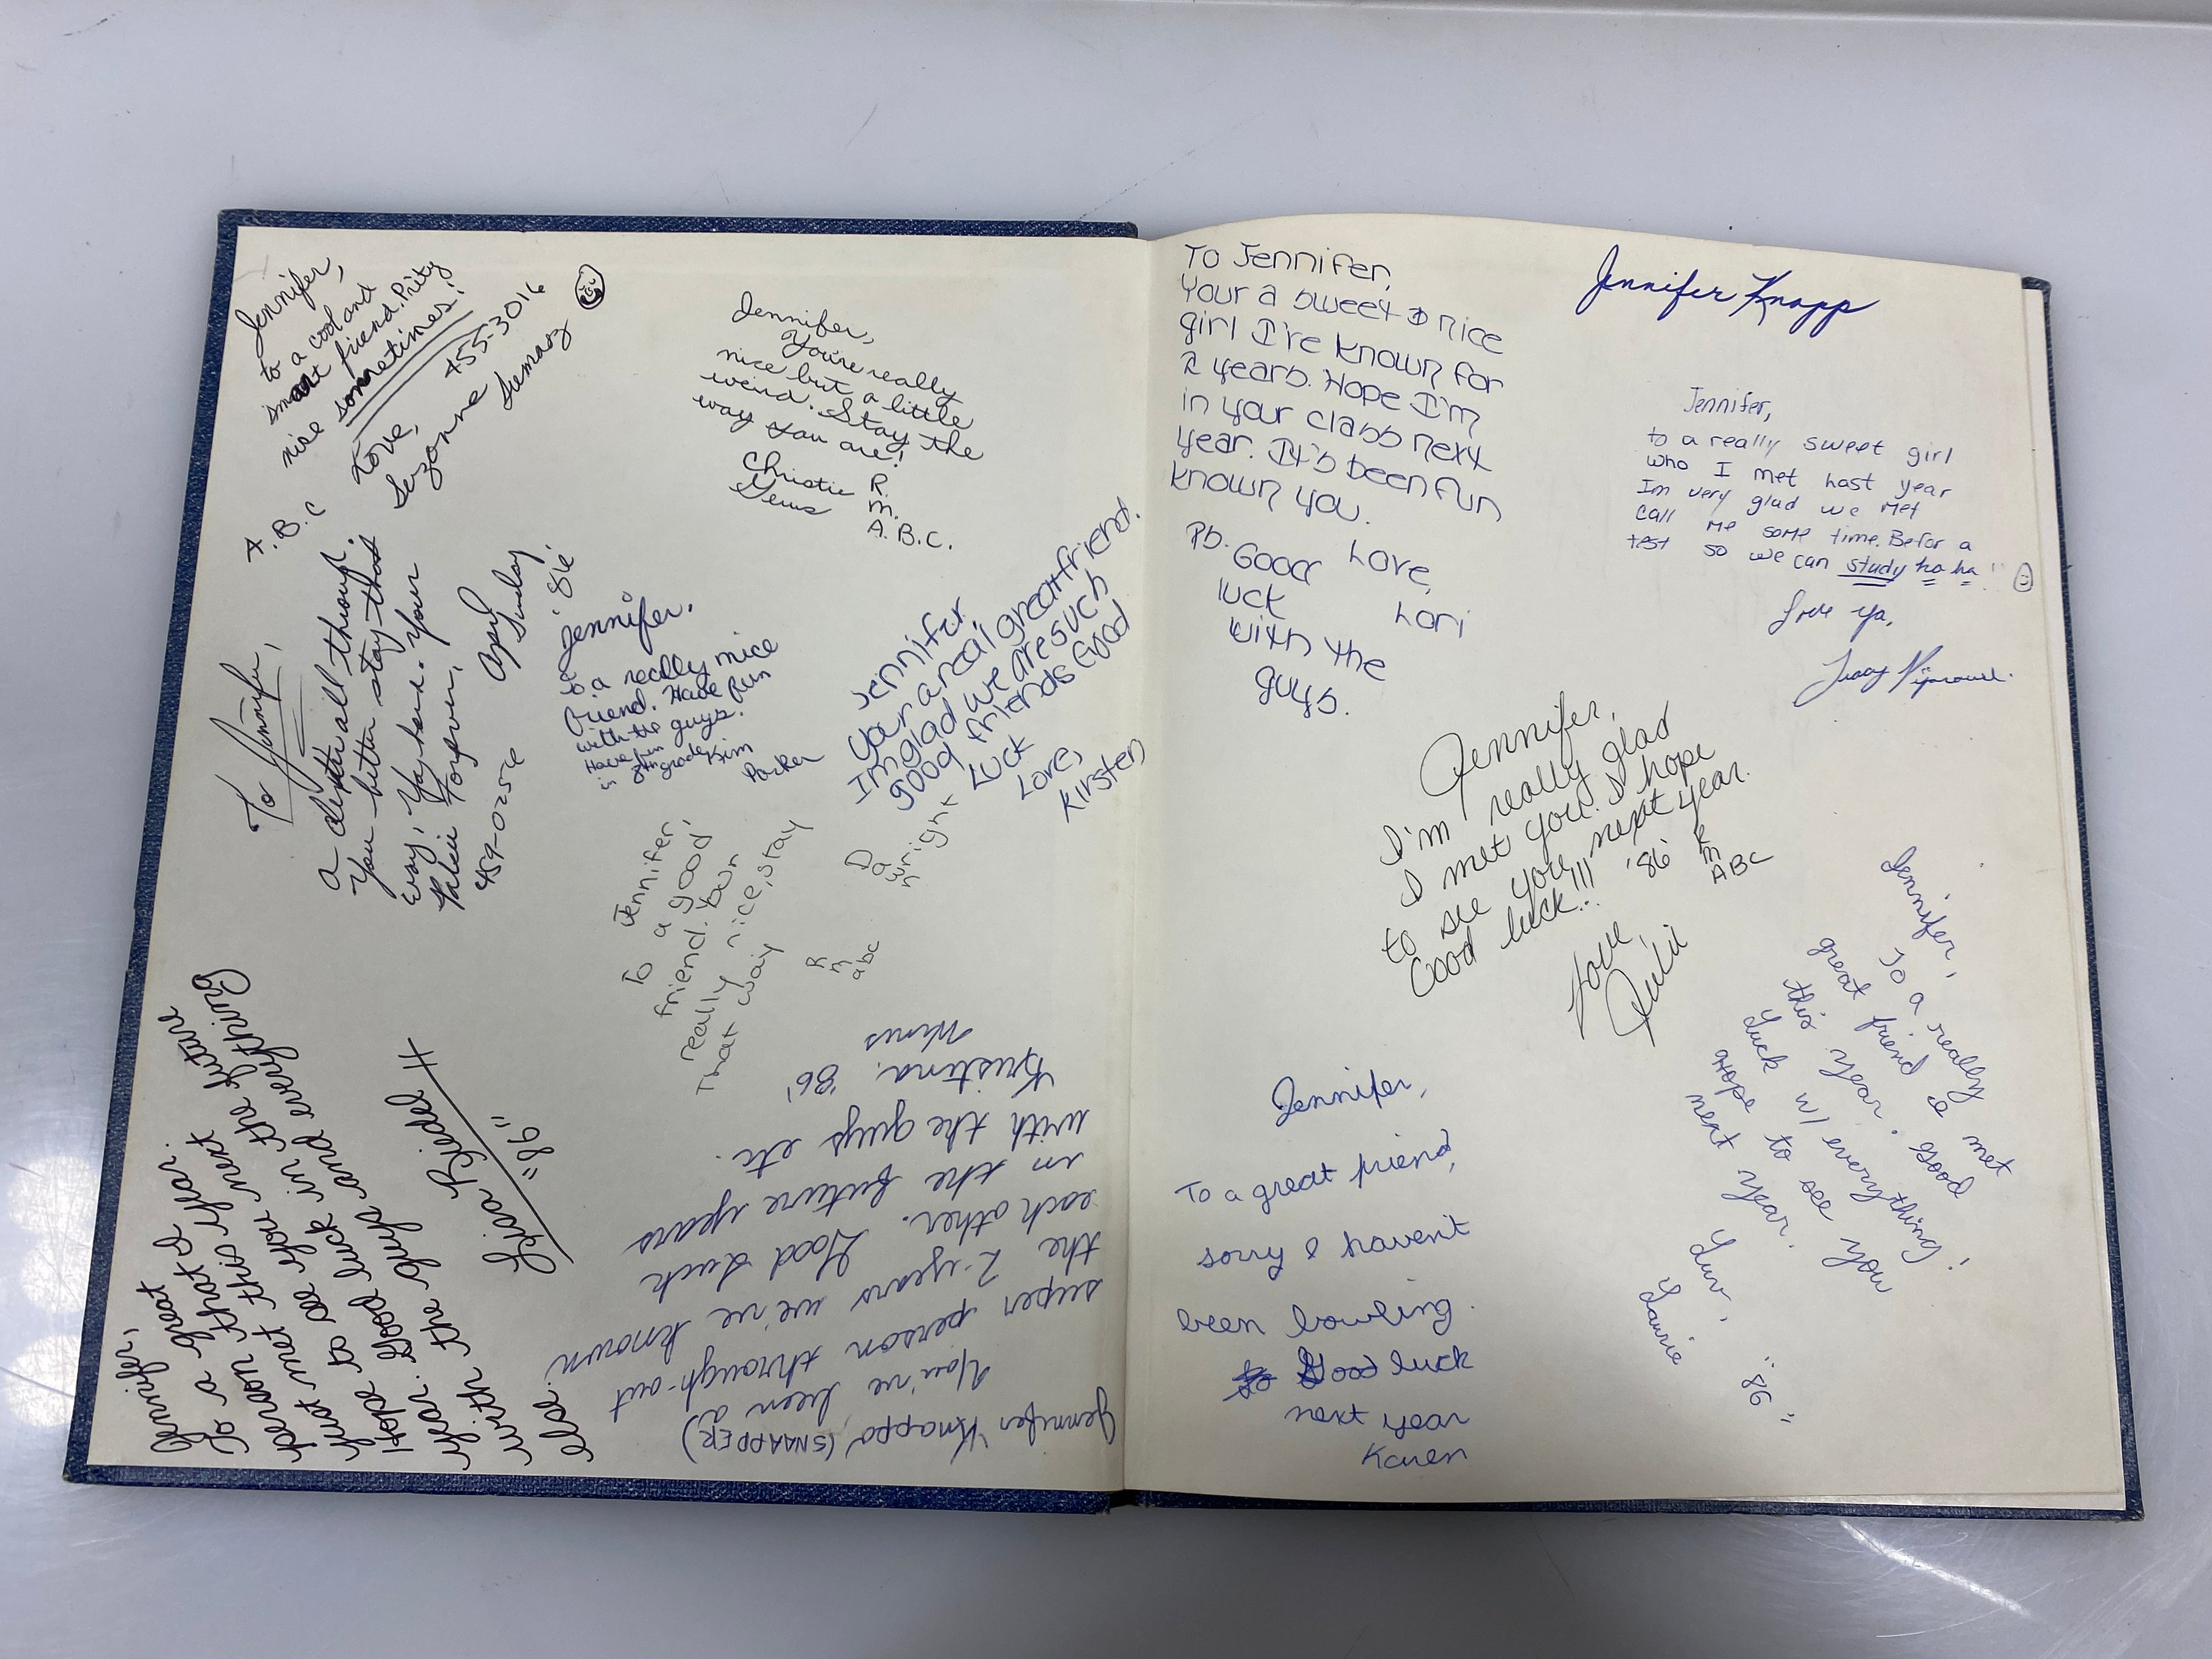 Jennifer,
to a cool and
smart friend. Prity
nice sometimes!
Love, 455-3016
Suzanne
A.B.C
Jennifer,
You're really
nice but a little
weird. Stay the
way you are!
Christie R.
M.
A.B.C.
To Jennifer,
a all through.
You better stay that
way! Your
Forever,
459-0256
'86
Jennifer,
to a really nice
friend. Have fun
with the guys.
Have fun
in 8th grade Kim
Parker
Jennifer,
Your a real great friend.
Im glad we are such
good friends Good
Luck
Love,
Kirsten
To Jennifer,
a good
friend. bun
really nice, stay
That way
Dawn
right
R
m
abc
Jennifer,
To a great
person that I
just met this year.
Hope to see you next
year. Good luck in the future
with the guys and everything
else.
Lisa Biedel
"86"
Jennifer Knapp (SNAAPPER)
You've been a
super person through-out
the 2-years we've known
each other. Good Luck
in the future years
with the guys etc.
Kristina '86'
Jennifer Knapp
To Jennifer,
Your a sweet & nice
girl I've known for
2 years. Hope I'm
in your class next
year. It's been fun
known you.
Love,
Lori
Ps. Good
luck
with the
guys.
Jennifer,
to a really sweet girl
who I met last year
Im very glad we met
call me some time. Befor a
test so we can study ha ha!
Love ya,
Jennifer,
I'm really glad
I met you. I hope
to see you next year.
Good luck!!! '86
R
M
ABC
Love,
Julii
Jennifer,
To a great friend,
sorry I haven't
been bowling.
Good luck
next year
Karen
Jennifer,
To a really
great friend I met
this year. Good
Luck w/ everything!
Hope to see you
next year.
Luv,
Laurie
"86"